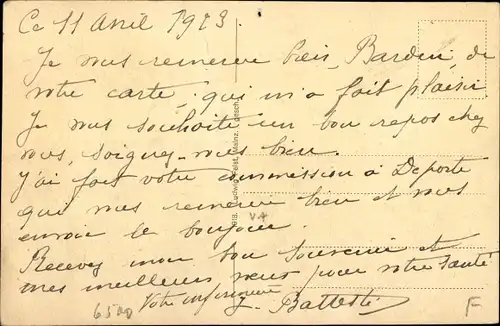 Ce 11 Avril 1923.
Je vous remercie bien, Bardin, de
votre carte, qui m'a fait plaisir
Je vous souhaite un bon repos chez
vous, soignez-vous bien.
J'ai fait votre commission à Deporte
qui vous remercie bien et vous
envoie le bonjour.
Recevez mon bon souvenir et
mes meilleurs vœux pour votre santé
Votre infirmière
J. Battesti
Ludwig Feist, Mainz.
6500
F